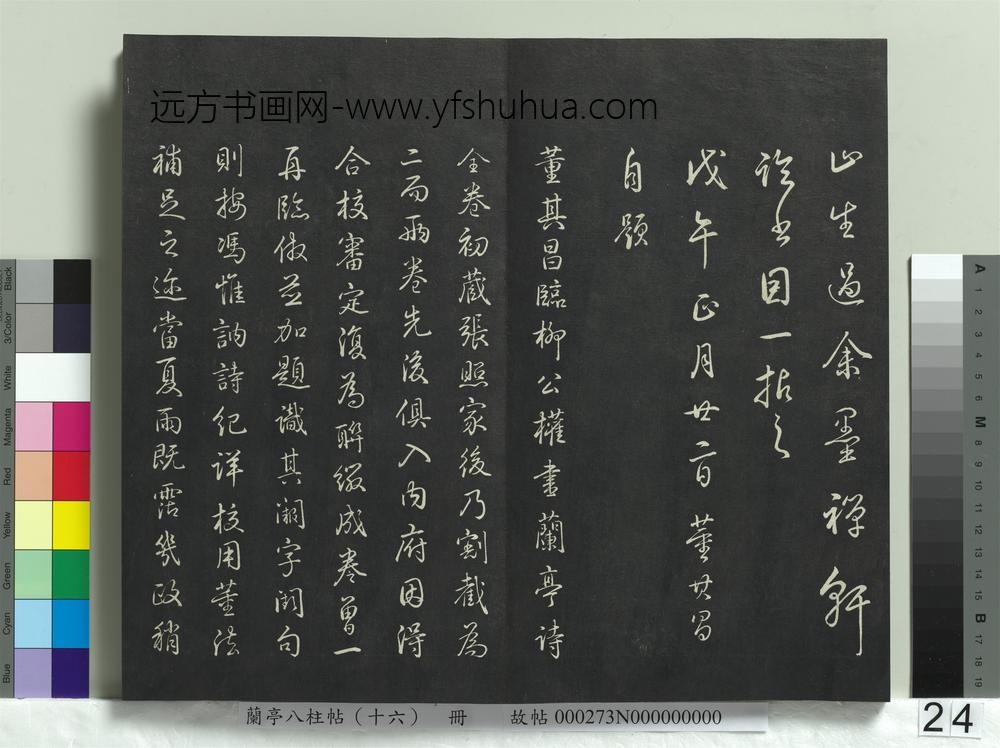 远方书画网-www.yfshuhua.com
山生過余墨禪軒
論書因一拈之
戊午正月廿二日董其昌
自題
董其昌臨柳公權書蘭亭詩
全卷初藏張照家後乃割截為
二而兩卷先後俱入內府因得
合校審定復為聯綴成卷曾一
再臨倣並加題識其漏字闕句
則按馮惟訥詩紀詳校用董法
補足之迩當夏雨既霑幾政稍
蘭亭八柱帖（十六） 冊 故帖 000273N000000000
24
Black
3/Color
White
Magenta
Red
Yellow
Green
Cyan
Blue
A
1
2
3
4
5
6
M
8
9
10
11
12
13
14
15
B
17
18
19